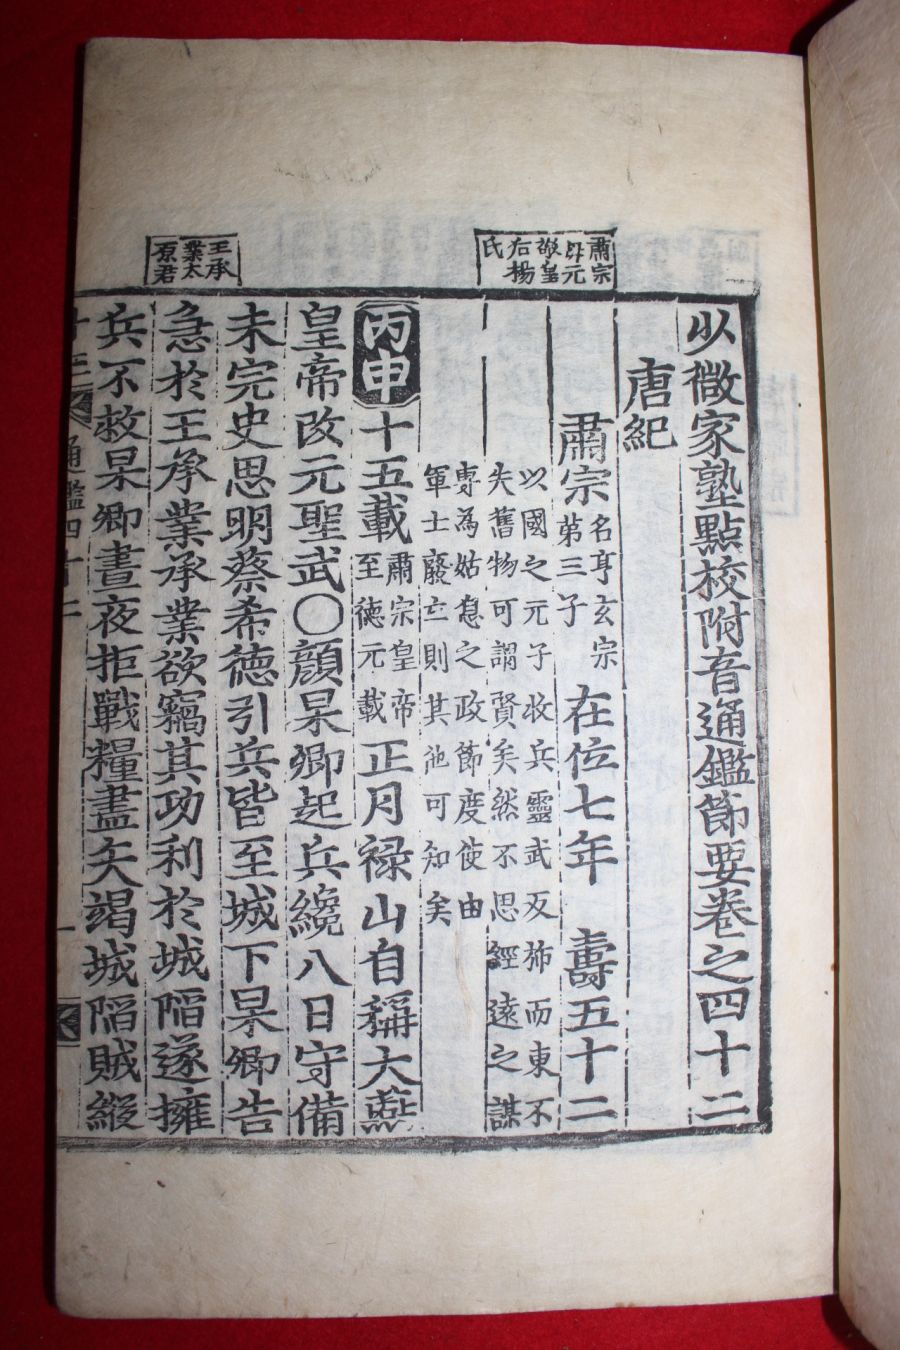 少微家塾點校附音通鑑節要卷之四十二
唐紀
肅宗名亨玄宗第三子在位七年 壽五十二
以國之元子收兵靈武反斾而東不
失舊物可謂賢矣然不思經遠之謀
專為姑息之政節度使由
軍士廢亡則其他可知矣
丙申十五載肅宗皇帝至德元載正月祿山自稱大燕
皇帝改元聖武○顔杲卿起兵纔八日守備
未完史思明蔡希德引兵皆至城下杲卿告
急於王承業承業欲竊其功利於城陷遂擁
兵不救杲卿晝夜拒戰糧盡矢竭城陷賊縱
肅宗
母元
獻皇
右楊
氏
王承
業太
原君
通鑑四十二
一